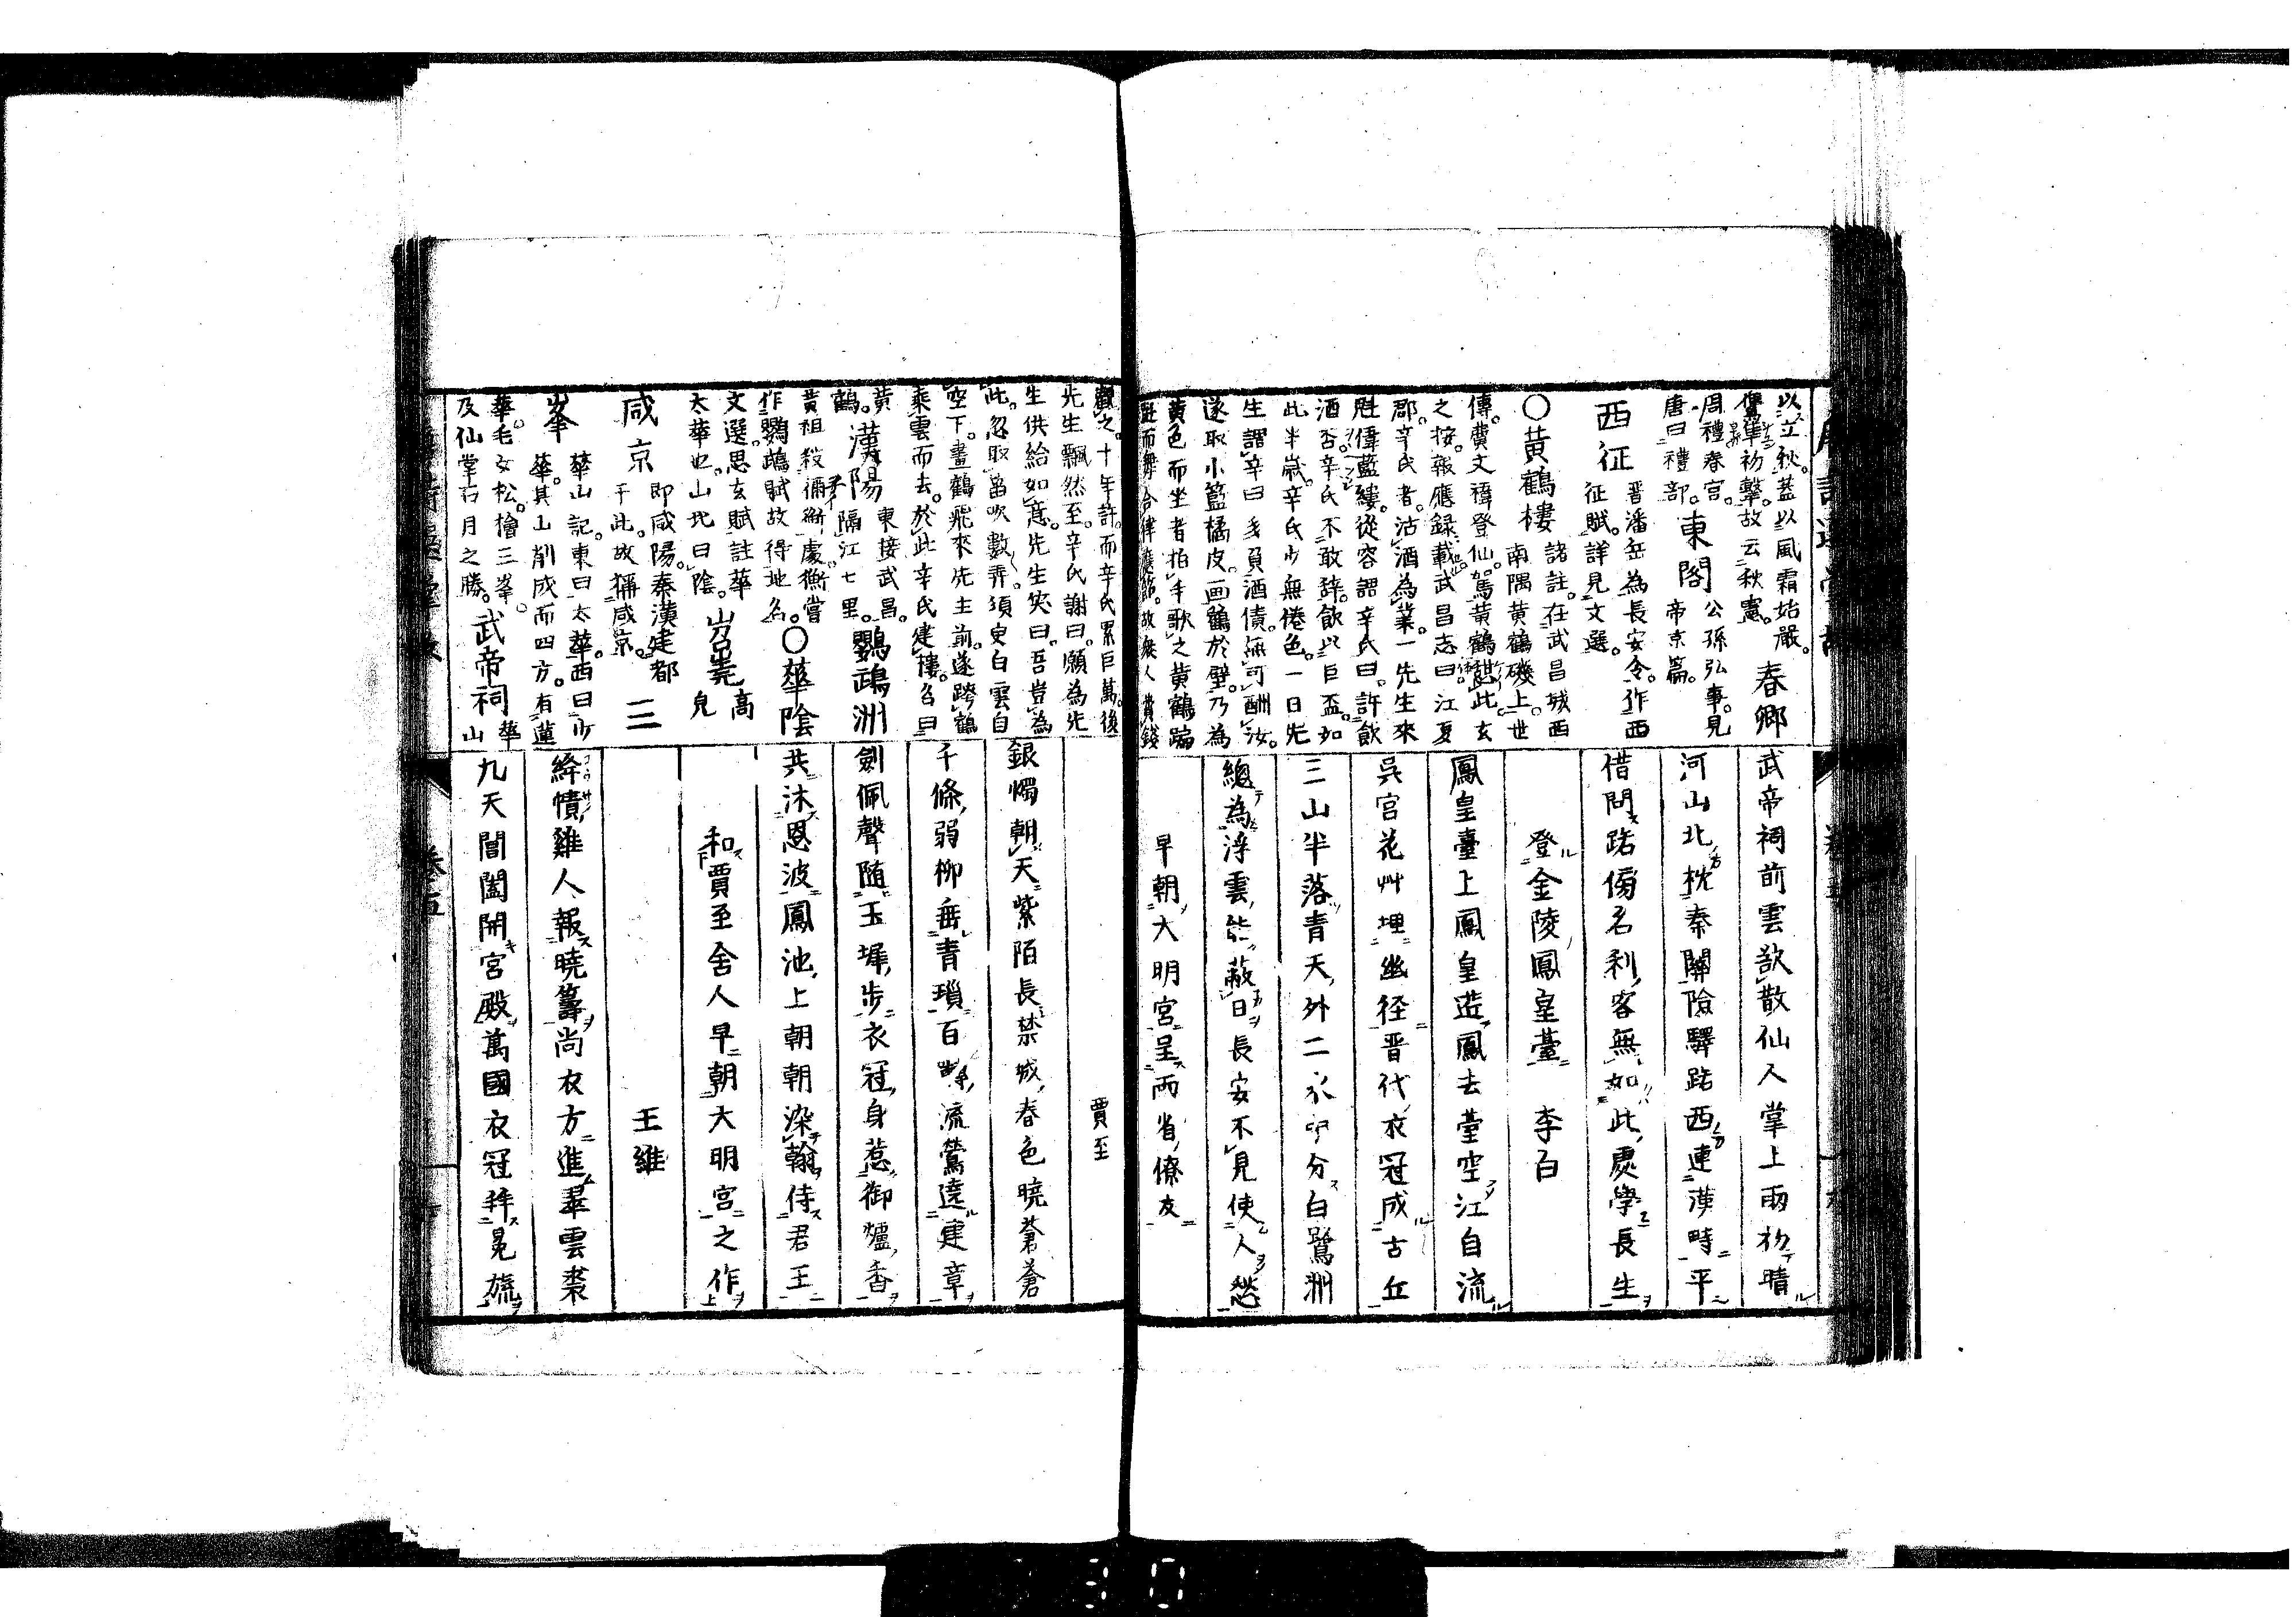 以立秋。蓋以風霜姑嚴。
鷹隼初擊。故云秋憲。 春卿
周禮春宮。
唐曰禮部。 東閣 公孫弘事。見
帝京篇。
西征 晋潘岳為長安令。作西
征賦。詳見文選。
○黃鶴樓 諸註。在武昌城西
南隅黃鶴磯上。世
傳。費文禕登仙。駕黃鶴憇此。玄
之按。報應録載武昌志曰。江夏
郡。辛氏者。沽酒為業。一先生來
魁偉藍縷。從容謂辛氏曰。許飲
酒否。辛氏不敢辞。飲以巨盃。如
此半歲。辛氏少無倦色。一日先
生謂辛曰多負酒債。無可酬汝。
遂取小籃橘皮。画鶴於壁。乃為
黃色而坐者拍手歌之黃鶴蹁
武帝祠前雲欲散仙人掌上雨初晴
河山北枕秦關險驛路西連漢畤平
借問路傍名利客無如此處學長生
登金陵鳳皇臺 李白
鳳皇臺上鳳皇遊鳳去臺空江自流
呉宮花艸埋幽径晋代衣冠成古丘
三山半落青天外二水中分白鷺洲
總為浮雲能蔽日長安不見使人愁
早朝大明宮呈兩省僚友
觀之。十年許。而辛氏累巨萬。後
先生飄然至。辛氏謝曰。願為先
生供給如意。先生笑曰。吾豈為
此。忽取笛吹數弄。須臾白雲自
空下。畫鶴飛來先生前。遂跨鶴
乘雲而去。於此辛氏建樓。名曰
黃
鶴。 漢陽 東接武昌。
隔江七里。 鸚鵡洲
黃祖殺禰衡處。衡嘗
作鸚鵡賦故得地名。 ○華陰
文選。思玄賦註華
太華也。山北曰陰。 岧嶤 高
見
咸京 即咸陽。秦漢建都
于此。故稱咸京。 三
峯 華山記。東曰太華。西曰少
華。其山削成而四方。有蓮
華。毛女松。檜三峯。
及仙掌石月之勝。 武帝祠 華
山
賈至
銀燭朝天紫陌長禁城春色曉蒼蒼
千條弱柳垂青瑣百囀流鶯遶建章
劍佩聲隨玉墀步衣冠身惹御爐香
共沐恩波鳳池上朝朝染翰侍君王
和賈至舍人早朝大明宮之作
王維
絳幘雞人報曉籌尚衣方進翠雲裘
九天閶闔開宮殿萬國衣冠拜冕旒
卷五